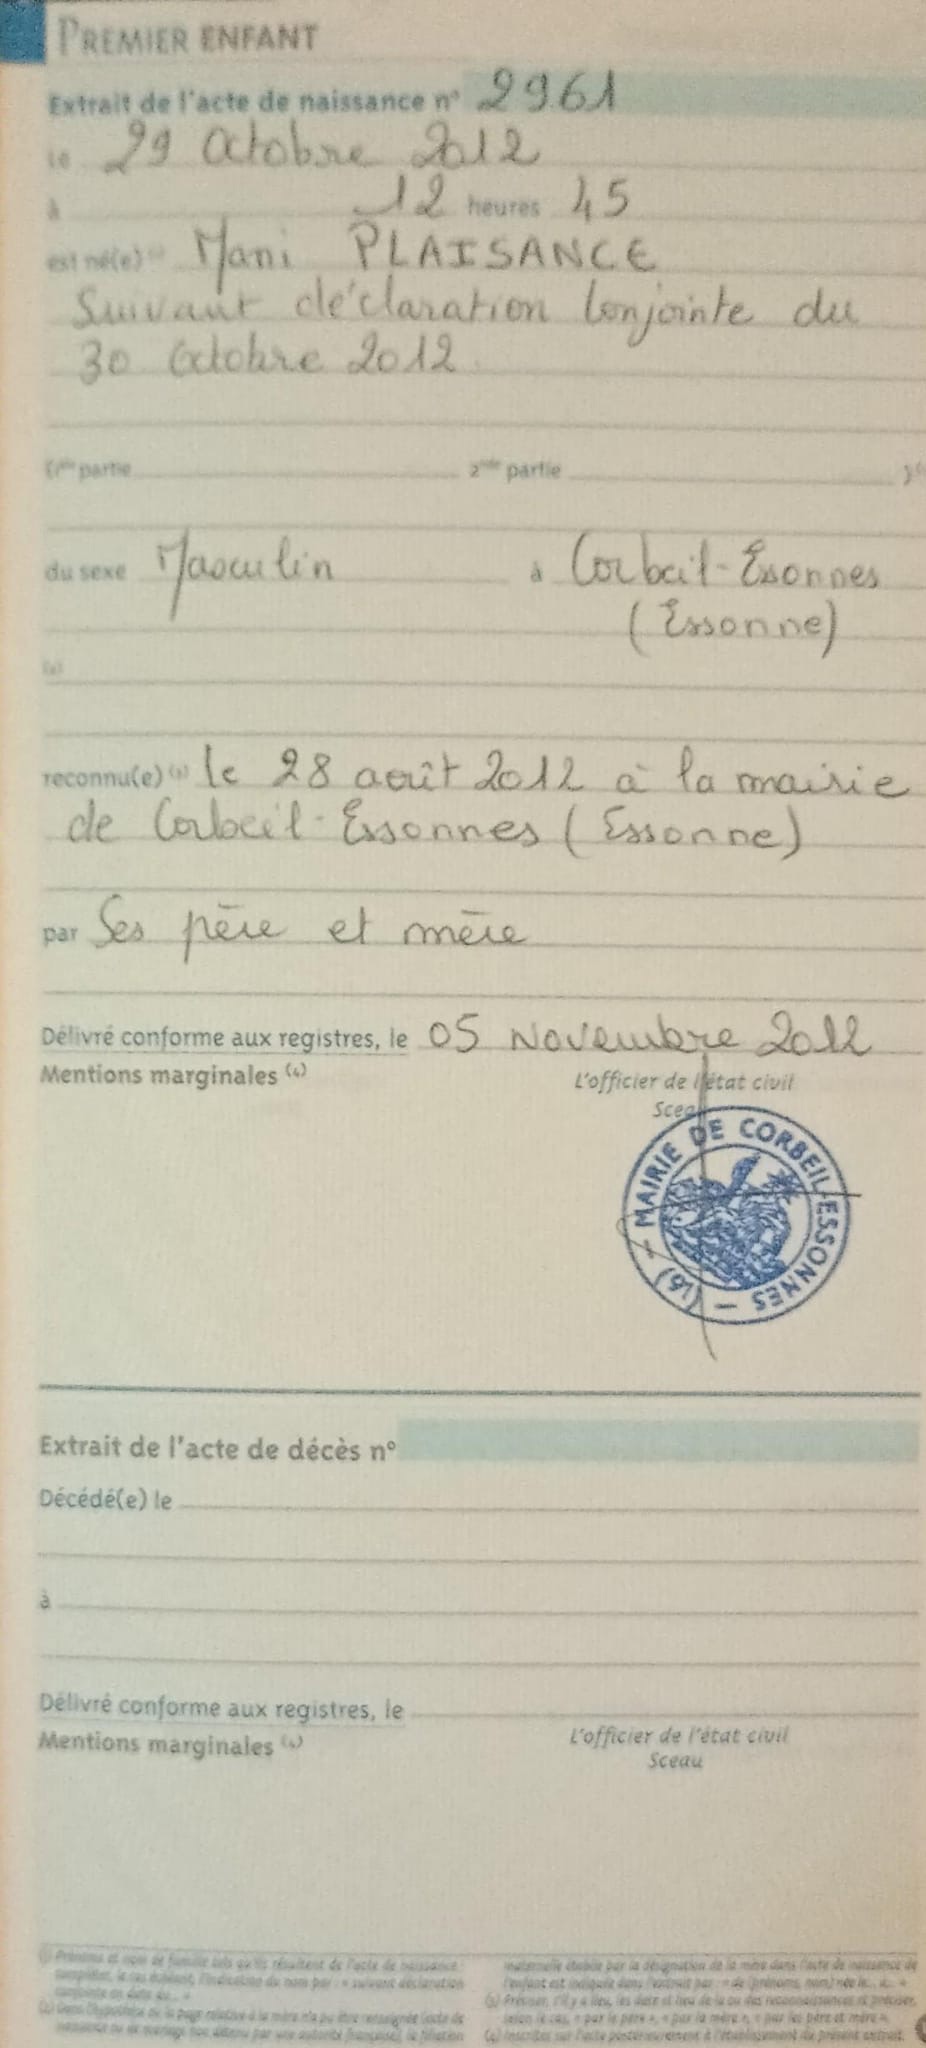 PREMIER ENFANT
Extrait de l'acte de naissance n° 2961
le 29 Octobre 2012
à 12 heures 45
est né(e) (1) Mani PLAISANCE
Suivant déclaration Conjointe du
30 Octobre 2012.
(1ère partie 2nde partie )(
du sexe Masculin à Corbeil-Essonnes
(Essonne)
(2)
reconnu(e) (3) le 28 août 2012 à la mairie
de Corbeil-Essonnes (Essonne)
par Ses père et mère
Délivré conforme aux registres, le 05 Novembre 2012
Mentions marginales (4) L'officier de l'état civil
Sceau
MAIRIE DE CORBEIL-ESSONNES – (91) –
Extrait de l'acte de décès n°
Décédé(e) le
à
Délivré conforme aux registres, le
Mentions marginales (4) L'officier de l'état civil
Sceau
(1) Prénoms et nom de famille tels qu'ils résultent de l'acte de naissance
compléter, le cas échéant, l'indication du nom par : « suivant déclaration
conjointe en date du... »
(2) Dans l'hypothèse où la page relative à la mère n'a pu être renseignée (acte de
naissance ou de mariage non détenu par une autorité française), la filiation
maternelle établie par la désignation de la mère dans l'acte de naissance de
l'enfant est indiquée dans l'extrait par : « de (prénoms, nom) née le... à... »
(3) Préciser, s'il y a lieu, les date et lieu de la ou des reconnaissances et préciser,
selon le cas, « par le père », « par la mère », « par les père et mère ».
(4) Inscrites sur l'acte postérieurement à l'établissement du présent extrait.